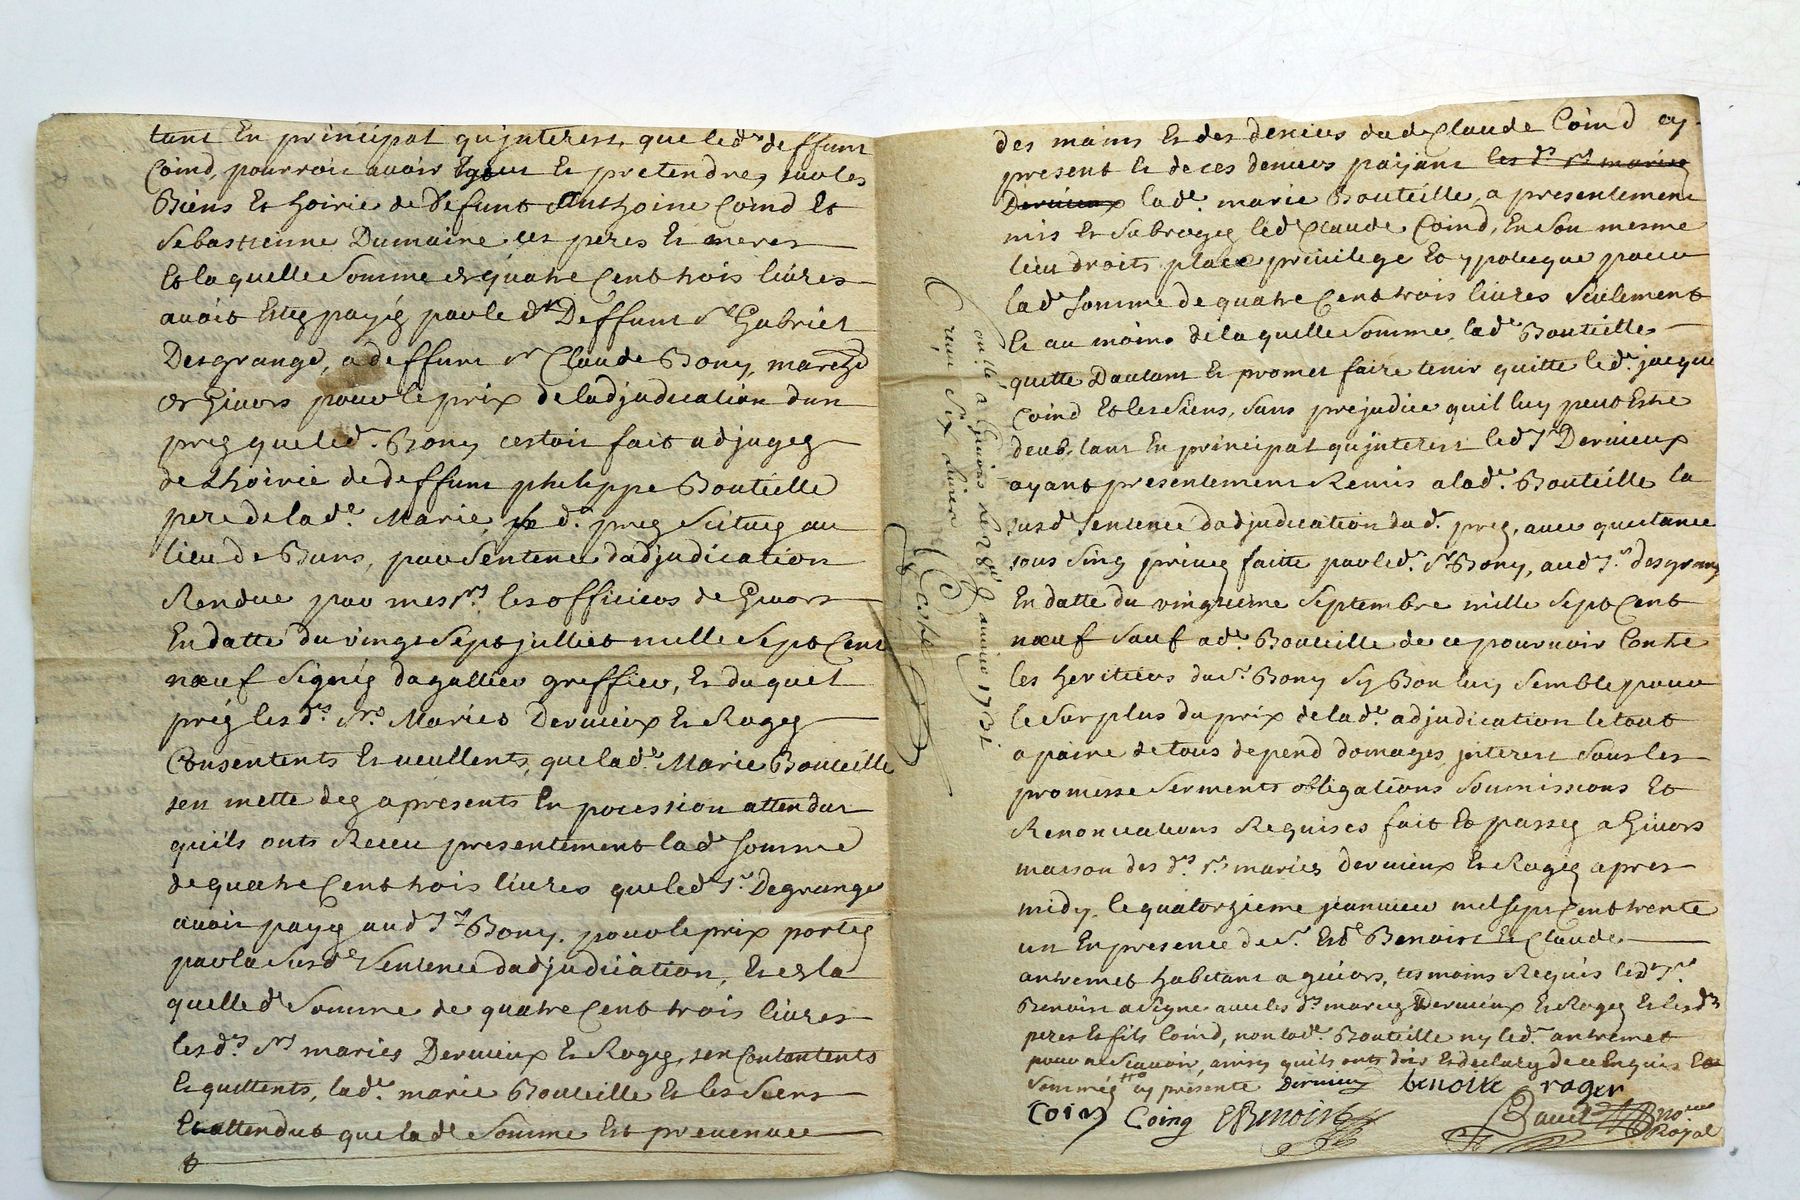 tant En principal qu'jnterest, que led.t deffunt
Coind, pourroit avoir Eu et pretendre, sur les
Biens Et hoirie de Defunt Anthoine Coind Et
Sebastienne Dumaine ses peres Et meres
Et la quelle Somme de quatre Cent trois livres
avoit Esté payéé par le d.t Deffunt S.r Gabriel
Desgrange, a deffunt S.r Claude Bony, march.d
de Givors pour le prix de ladjudication dun
preg que led.t Bony cestoit fait adjugeg
de Lhoirie de deffunt philippe Bouteille
pere de la d.e Marie, le d.t preg Scitueg au
lieu de Bans, par Sentence dadjudication
Rendue par mess.rs les officiers de Givors
En datte du vingt Sept juillet mille Sept Cent
nœuf Signég dagallier greffier, Et duquel
prég les d.s S.rs Mariés Dervieux Et Rogeg
Consentents Et veullents, que la d.e Marie Bouteille
sen mette deg apresents En pocession attendut
quils onts Receu presentement la d.e Somme
de quatre Cent trois livres que led.t S.r Degrange
avoit payeg aud.t S.r Bony, pour le prix porteg
par la Susd.e Sentence dadjudication, Et de la
quelle d.e Somme de quatre Cent trois livres
les d.s S.rs mariés Dervieux Et Rogeg, sen Contentents
Et quittents, la d.e marie Bouteille Et les Siens
Et attendut que la d.e Somme Est provenuee
des mains Et des deniers dud.t Claude Coind cy
present Et de ces deniers paÿant les d.s S.rs mariés
Dervieux la d.e marie Bouteille, a presentement
mis Et Subrogeg led.t Claude Coind, En Son mesme
lieu droits place privilege Et ypoteque pour
la d.e Somme de quatre Cent trois livres Seulement
Et au moins de la quelle Somme, la d.e Bouteille
quitte Dautant Et promet faire tenir quitte led.t jacque
Coind Et les Siens, Sans prejudice quil luy peut Estre
deub, tant En principal qu'jnterest led.t S.r Dervieux
ayant presentement Remis a la d.e Bouteille la
susd.e Sentence dadjudication dud.t preg, avec quittance
sous Sing priveg faitte par led.t S.r Bony, aud.t S.r desgrange
En datte du vingtieme Septembre mille Sept Cent
nœuf Sauf a d.e Bouteille de ce pourvoir Contre
les heritiers du S.r Bony Sy Bon luy Semble pour
le Surplus du prix de la d.e adjudication le tout
a paine de tous depend domages jnterest Sous les
promesse Serments obligations Soumissions Et
Renonciations Requises fait Et passeg a Givors
maison des d.s S.rs mariés dervieux Et Rogeg apres
midy, le quatorzieme jeanvier mil Sept Cent trente
un En presence de S.r Benoist Et Claude
antremet habitant a givors, tesmoins Requis led.t S.r
Benoist a Signe avec les d.s mariés Dervieux Et Rogeg Et les d.s
peres Et fils Coind, non la d.e Bouteille ny led.t antremet
pour ne Scavoir, ainsy quils onts dit Et declareg de ce Enquis Et
Sommég cy presente Dervieux benoitte roger
Coin Coing Benoist Royal
con.lé a Givors le 28.e janvier 1731